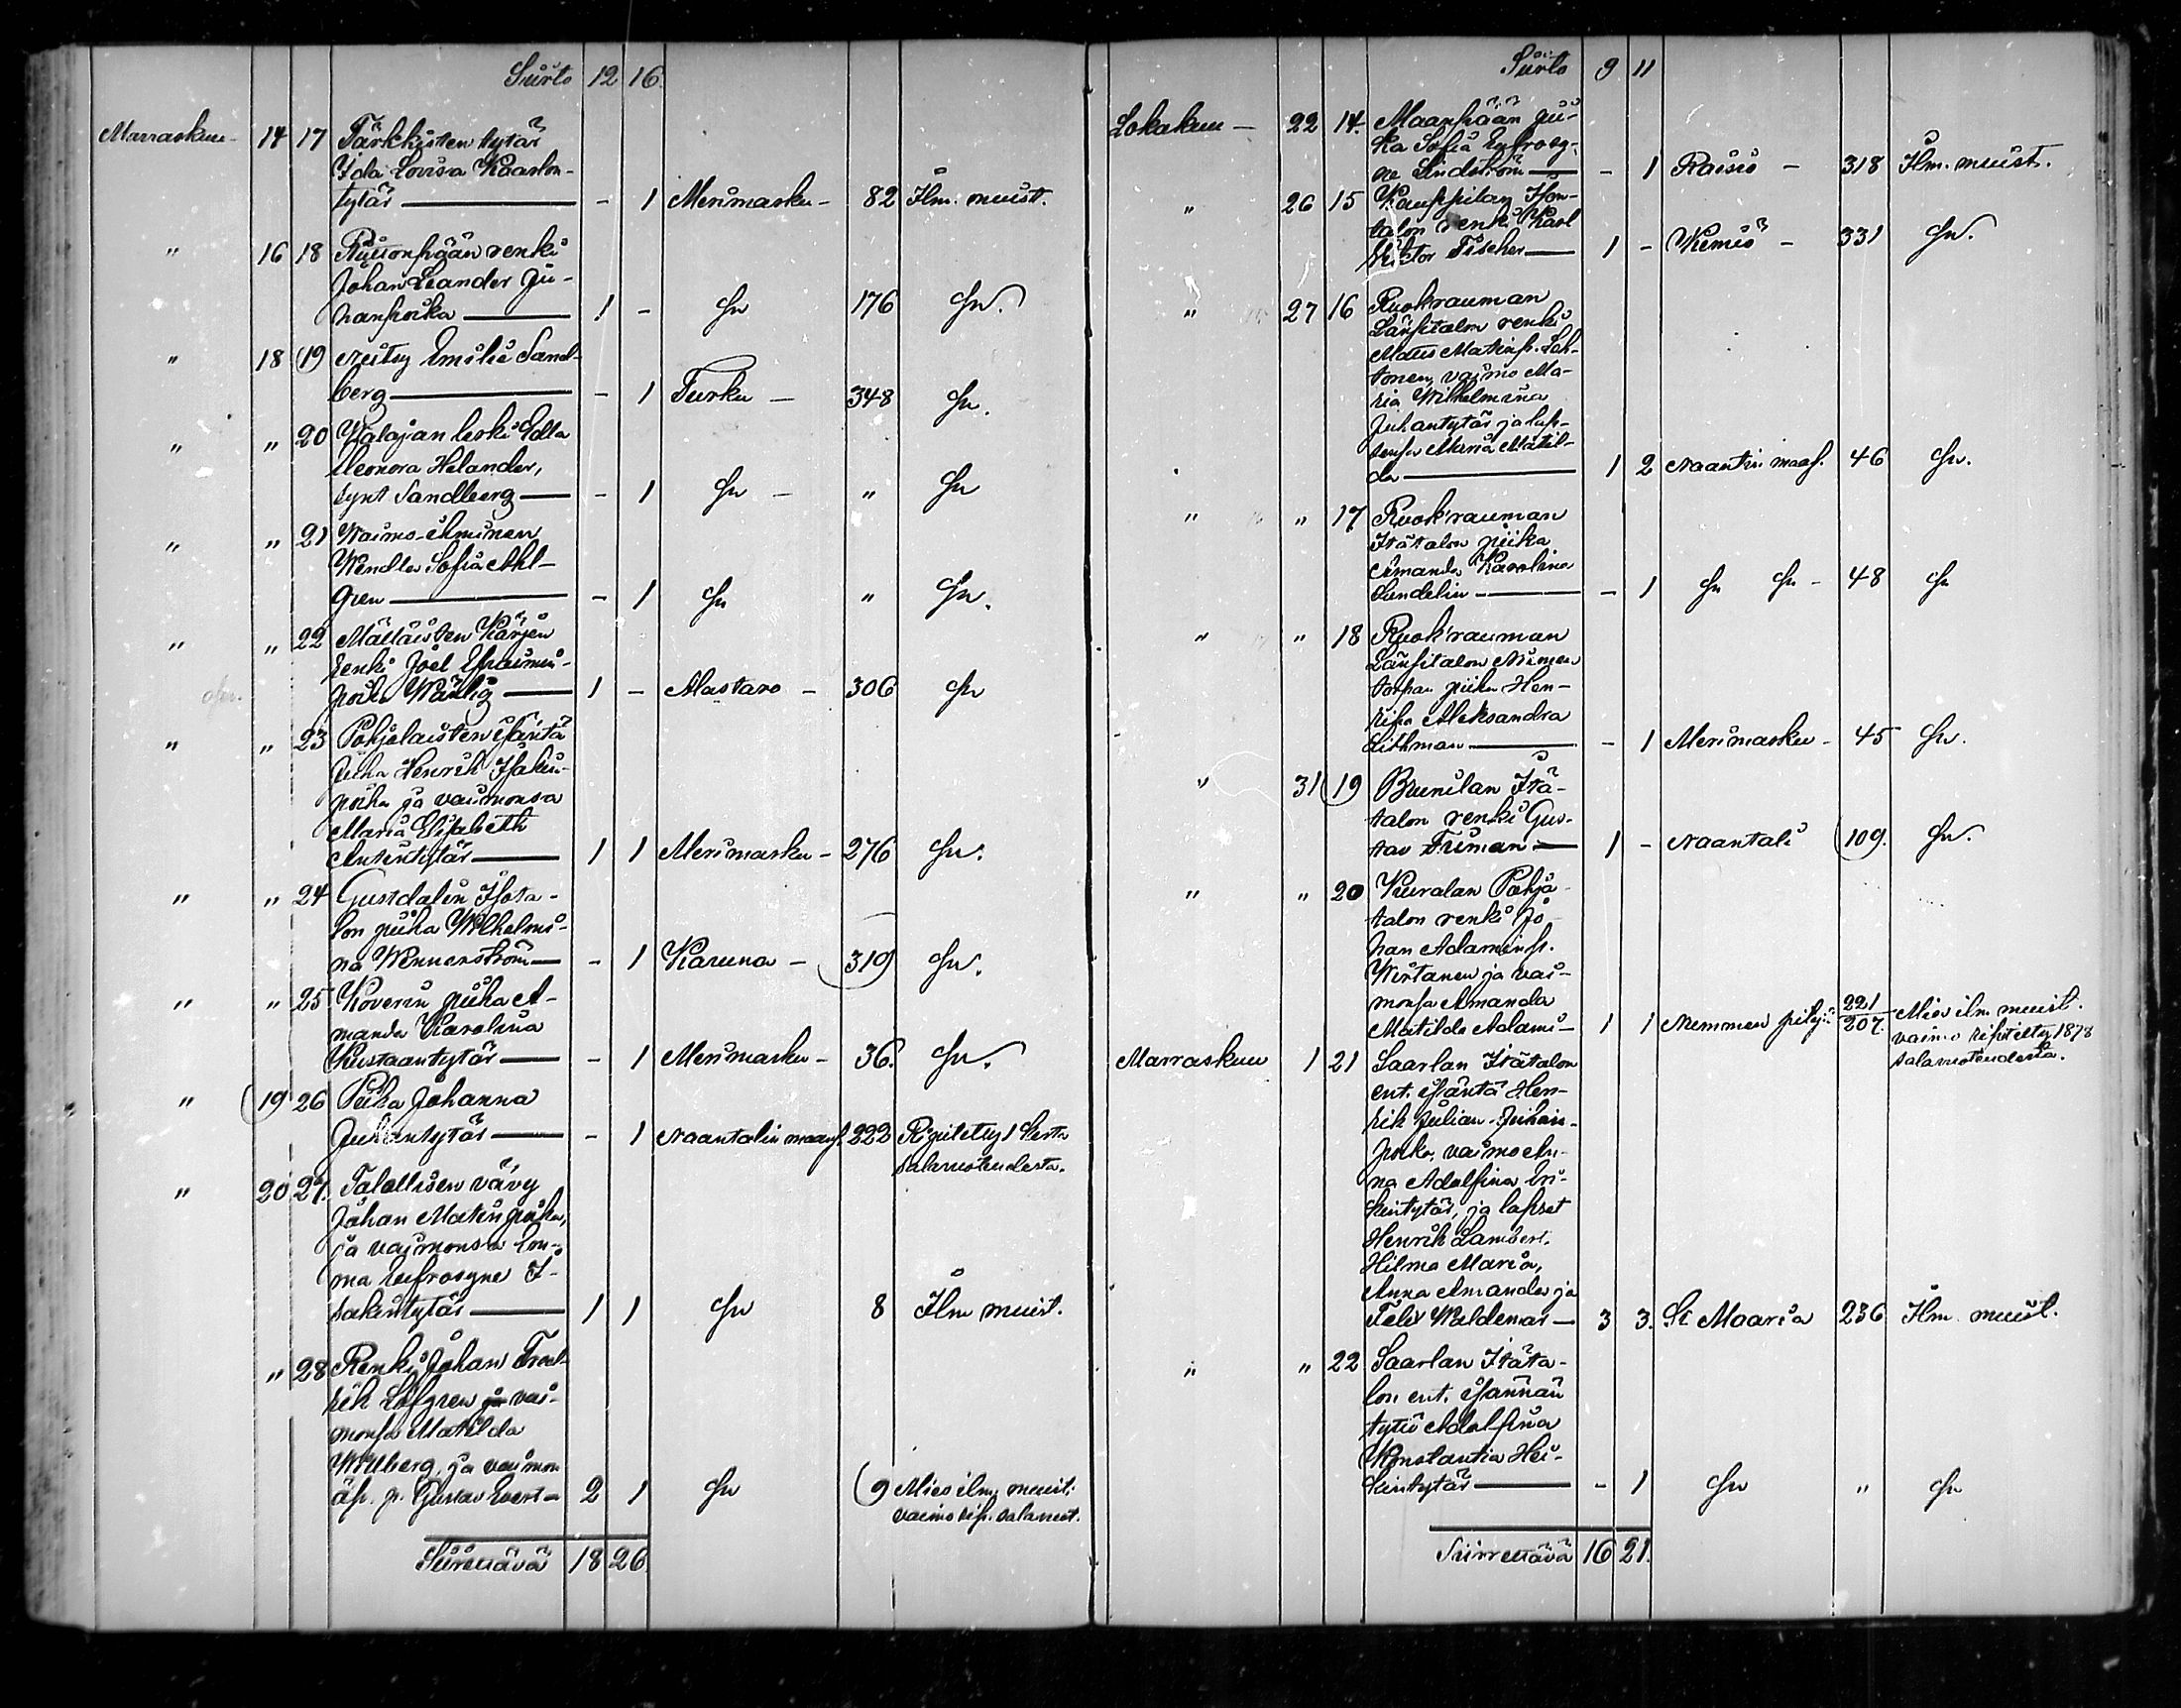 Siirto 12 16
Marraskuu 14 17 Tärkkisten tytär
Ida Lovisa Kaarlon-
tytär — - 1 Merimasku - 82 Ilm. muist.
" 16 18 renki
Johan Leander Ju-
hanpoika — 1 - Sn 176 Sn.
" 18 19 Neitsy Emilie Sand-
berg — - 1 Turku - 348 Sn.
" " 20 Walajan leski Edla
Eleonora Helander,
synt Sandberg — - 1 Sn - " Sn
" " 21 Waimo-ihminen
Wendla Sofia Ahl-
gren — - 1 Sn " Sn.
" " 22 Mällaisten Kärjen
renki Joel Efraimin-
poika — 1 - Alastaro - 306 Sn
" " 23 Pohjolaisten isäntä
Juha Henrik Isakin-
poika ja vaimonsa
Maria Elisabeth
Antintytär — 1 1 Merimasku - 276 Sn.
" " 24 Gustdalin Isota-
lon piika Wilhelmi-
na Wennerström — - 1 Karuna - 319 Sn.
" " 25 Koverin piika A-
manda Karolina
Kustaantytär — - 1 Merimasku - 36. Sn.
" 19 26 Piika Johanna
Juhantytär — - 1 Naantalin maas. 222 Ripitetty 1 kerta
salamuotuudesta.
" 20 27. Talollisen vävy
Johan Matinpoika,
ja vaimonsa Em-
ma Eufrosyne I-
sakintytär — 1 1 Sn 8 Ilm muist.
" 28 Renki Johan Fred-
rik Löfgren ja vai-
monsa Matilda
Willberg, ja vaimon
äp. p. Gustav Evert - 2 1 Sn 9 Mies ilm. muist.
vaimo rip. salamuot.
Siirrettävä 18 26.
Siirto 9 11
Lokakuu - 22 14. Maanpään pii-
ka Sofia Eufrosy-
ne Lindström — - 1 Raisio - 318 Ilm. muist.
" 26 15 Kauppilan Ison-
talon renki Karl
Viktor Fischer — 1 - Kemiö - 331 Sn.
" 27 16 Ruokrauman
Länsitalon renki
Matts Matinp. Leh-
tonen, vaimo Ma-
ria Wilhelmina
Juhantytär ja lap-
sensa Maria Matil-
da — 1 2 Naantin maas. 46 Sn.
" " 17 Ruokrauman
Itätalon piika
Amanda Karolina
Lundelin — - 1 Sn Sn - 48 Sn
" " 18 Ruokrauman
Länsitalon Niemen
torpan piika Hen-
rika Aleksandra
Lithman — - 1 Merimasku - 45 Sn.
" 31 19 Brunilan Itä-
talon renki Gus-
tav Friman — 1 - Naantali 109. Sn.
" " 20 Kuralan Pohja-
talon renki Jo-
han Adaminp.
Wirtanen ja vai-
monsa Amanda
Matilda Adami- 1 1 Nummen pitäjä 221/207. Mies ilm muist.
vaimo ripitetty 1878
salamuotuudesta.
Marraskuu 1 21 Saarlan Itätalon
ent. isäntä Hen-
rik Julian Juhan-
poika, vaimo An-
na Adolfina Eri-
kintytär, ja lapset
Henrik Lambert,
Hilma Maria,
Anna Amanda ja
Felix Waldemar — 3 3. St Maaria 236 Ilm. muist.
" " 22 Saarlan Itäta-
lon ent. isännän
tytär Adolfina
Konstantia Hei-
kintytär — - 1 Sn " Sn
Siirrettävä 16 21.